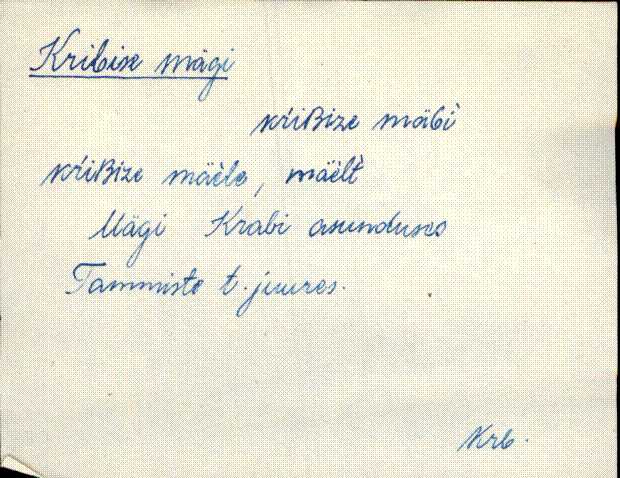 Kribise mägi
kŕiʙize mäɢì
kŕiʙize mäèle, mäèlt̀
Mägi Krabi asunduses
Tammiste t. juures.
Krb.